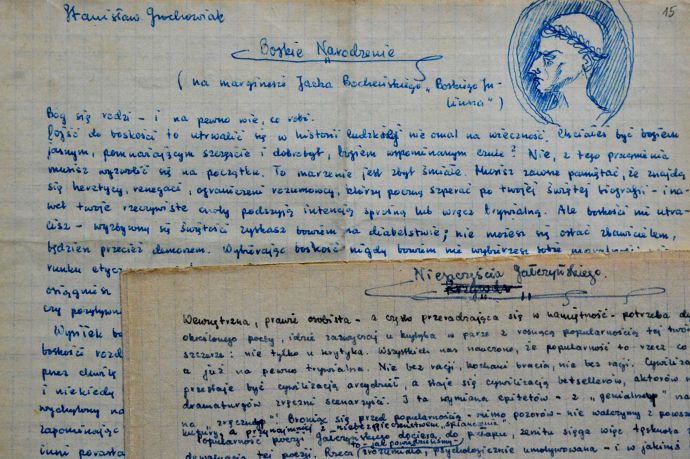 Stanisław Grochowiak
15
Boskie Narodzenie
(na marginesie Jacka Bocheńskiego „Boskiego Ju-
liusza")
Bóg się rodzi - i na pewno wie, co robi.
Dojść do boskości to utrwalić się w historii ludzkiej nie omal na wieczność. Chciałeś być bogiem
jasnym, pomnażającym szczęście i dobrobyt, bogiem wspominanym czule? Nie, z tego pragnienia
musisz wyzwolić się na początku. To marzenie jest zbyt śmiałe. Musisz zawsze pamiętać, że znajdą
się heretycy, renegaci, ograniczeni rozumowcy, którzy poczną szperać po twojej świętej biografii - i na-
wet twoje rzeczywiste cnoty podszyją intencją sprośną lub wręcz trywialną. Ale boskości nie utra-
cisz - wyzbywszy się świętości zyskasz bowiem na diabelstwie; nie możesz się ostać zbawicielem,
będziesz przecież demonem. Wybierając boskość nigdy bowiem nie wybierzesz sobie
runku etycz
osiągniesz
czy pozytywn
Wysiłek bo
boskości rozd
przez chwilę
i niekiedy
wychylony na
zapominając
inni powsta
Nieszczęścia Gałczyńskiego.
Wewnętrzna, prawie osobista - a często przeradzająca się w namiętność - potrzeba
określonego poety, idzie zazwyczaj u krytyka w parze z rosnącą popularnością tej twór
szczerze: nie tylko u krytyka. Wszystkich nas nauczono, że popularność to rzecz co
a już na pewno trywialna. Nie bez racji, kochani bracia, nie bez racji. Cywiliza
przestaje być cywilizacją arcydzieł, a staje się cywilizacją bestsellerów, aktorów
dramaturgów zręczni scenarzyści. I ta wymiana epitetów - z „genialnego" na
na „zręcznego" Broniąc się przed popularnością - mimo pozorów - nie walczymy z powsz
kultury, a przynajmniej z niebezpieczeństwem „spłaszczenia"
Popularność poezji Gałczyńskiego dociera do pułapu, zenitu sięga więc tęsknota
to - jak powiedzieliśmy -
dewaluacją tej poezji. Rzecz zrozumiała, psychologicznie umotywowana - i w jakimś